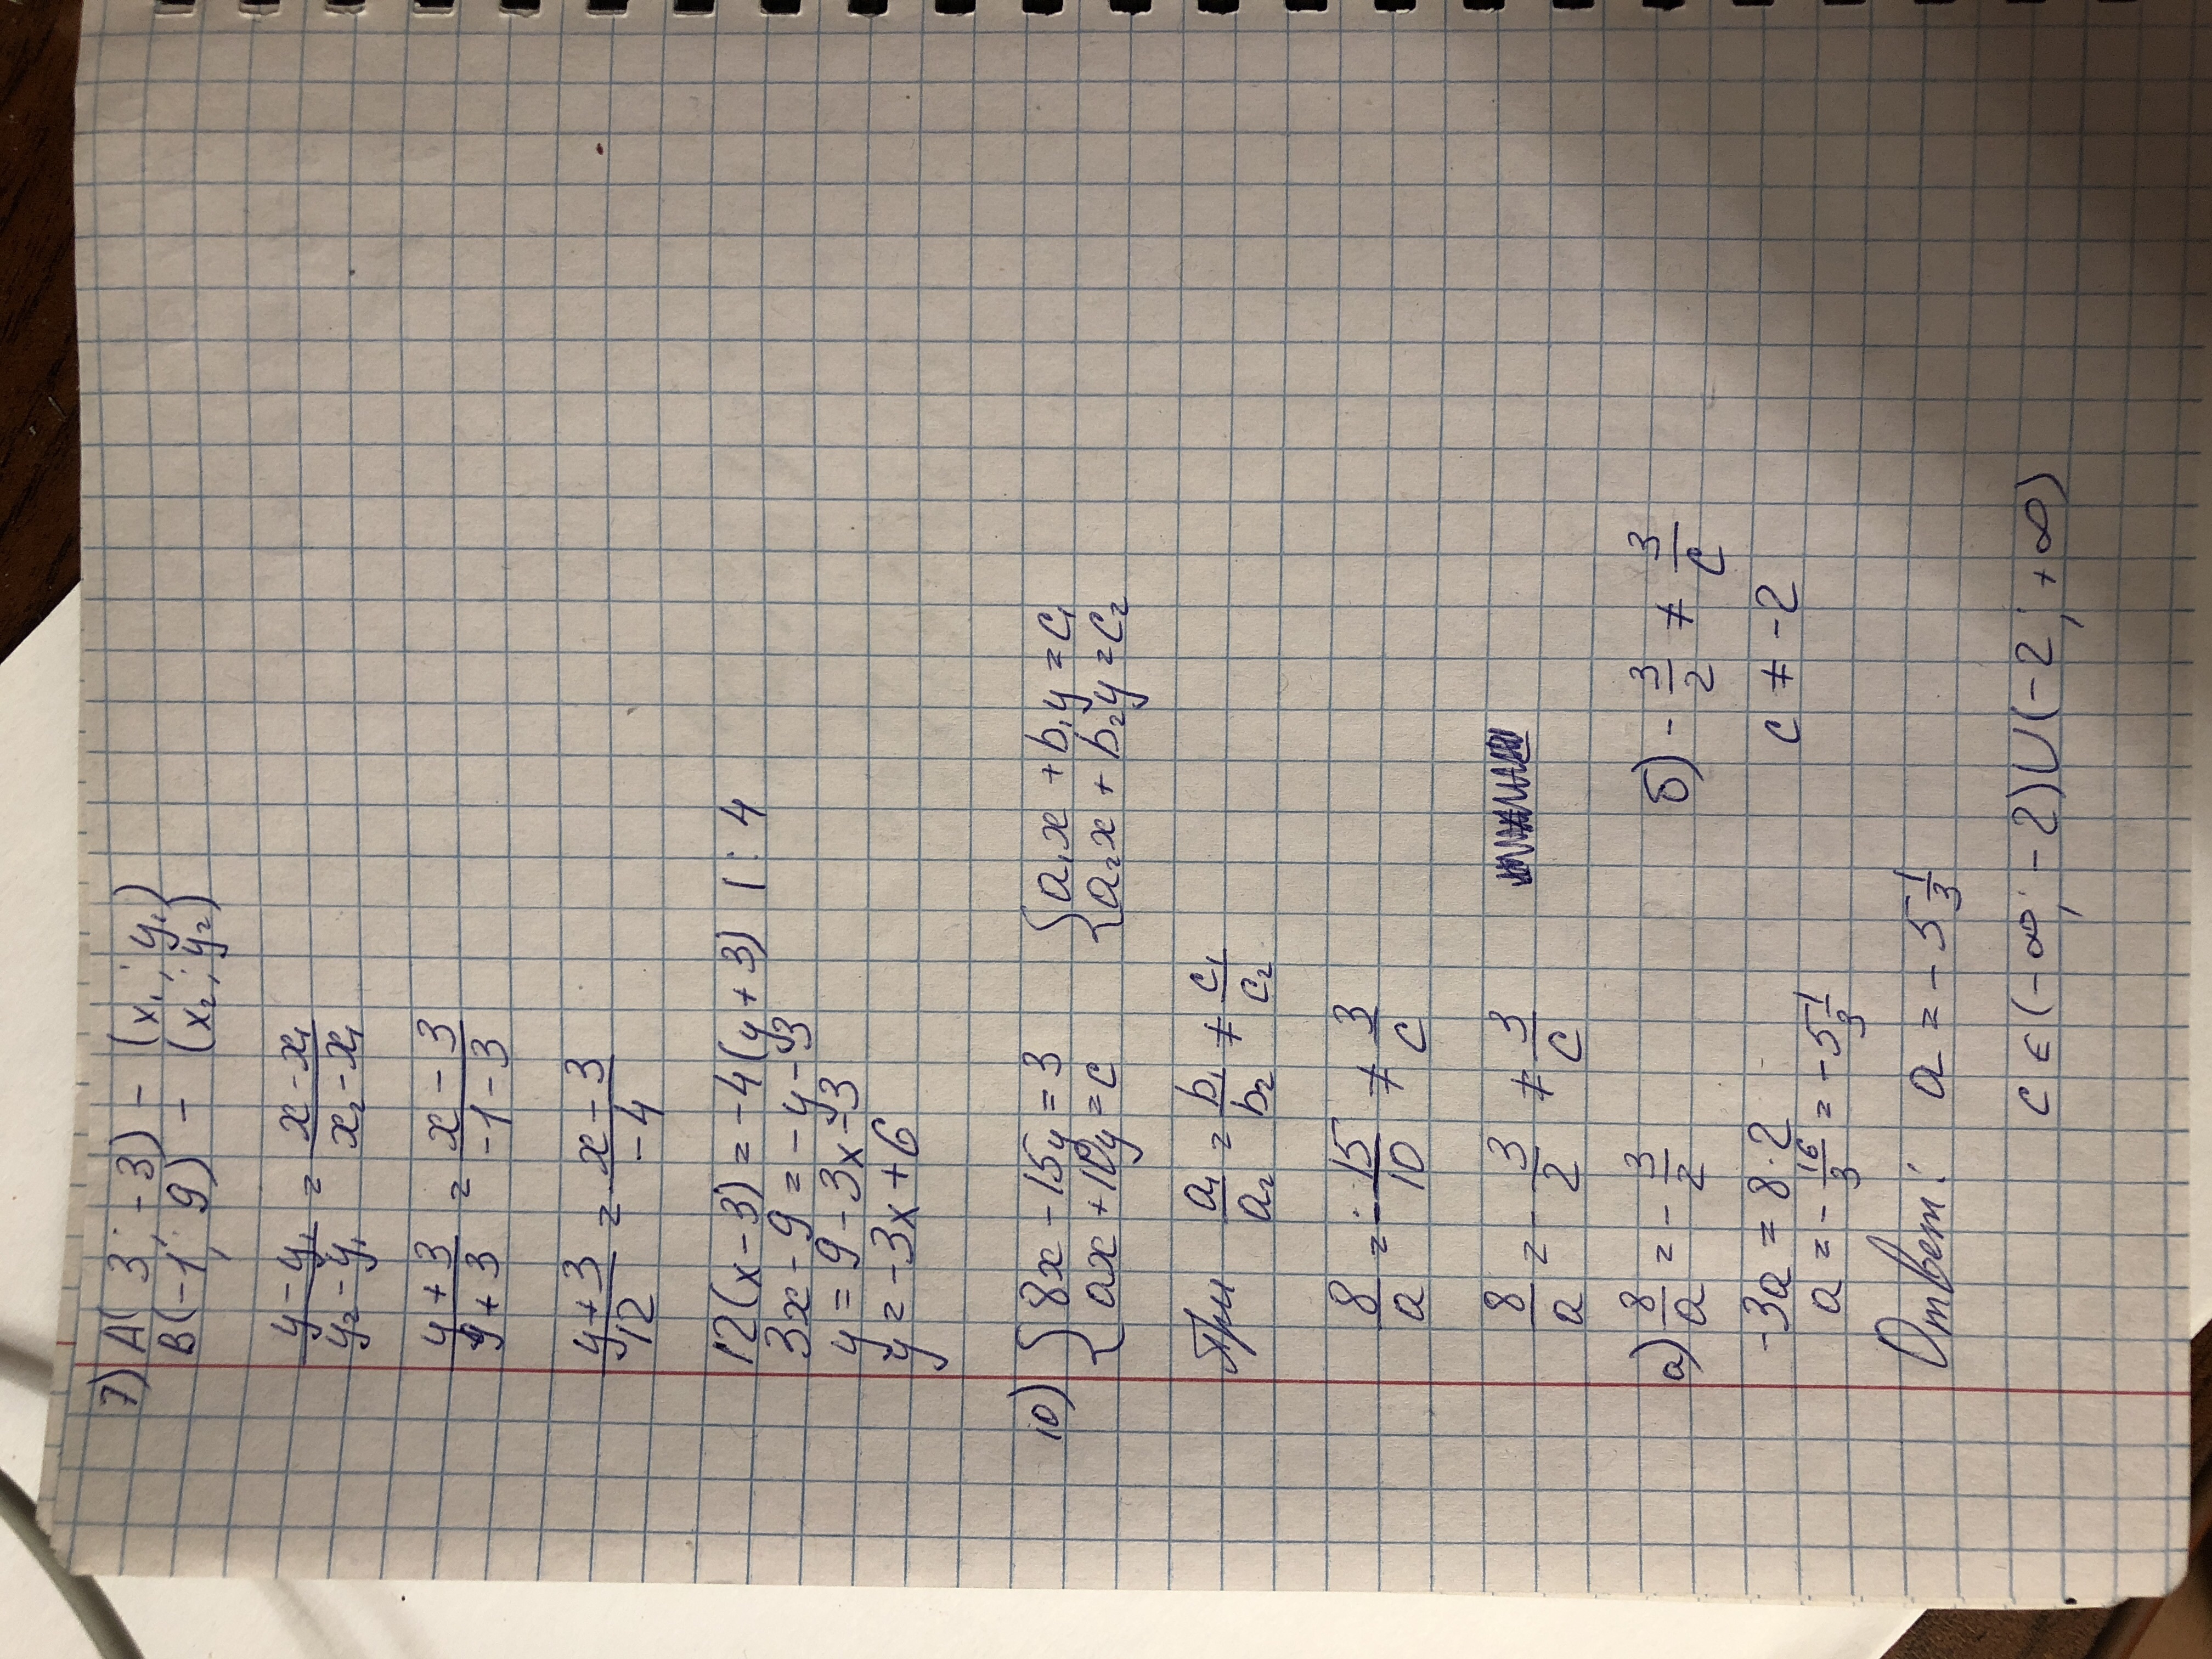 7) A(3; -3) - (x₁; y₁)
B(-1; 9) - (x₂; y₂)
(y - y₁)/(y₂ - y₁) = (x - x₁)/(x₂ - x₁)
(y + 3)/(9 + 3) = (x - 3)/(-1 - 3)
(y + 3)/12 = (x - 3)/(-4)
12(x - 3) = -4(y + 3) | : 4
3x - 9 = -y - 3
y = 9 - 3x - 3
y = -3x + 6
10) { 8x - 15y = 3 { a₁x + b₁y = c₁
ax + 10y = c a₂x + b₂y = c₂
При a₁/a₂ = b₁/b₂ ≠ c₁/c₂
8/a = -15/10 ≠ 3/c
8/a = -3/2 ≠ 3/c
а) 8/a = -3/2 б) -3/2 ≠ 3/c
-3a = 8·2 c ≠ -2
a = -16/3 = -5 1/3
Ответ: a = -5 1/3
c ∈ (-∞; -2) ∪ (-2; +∞)